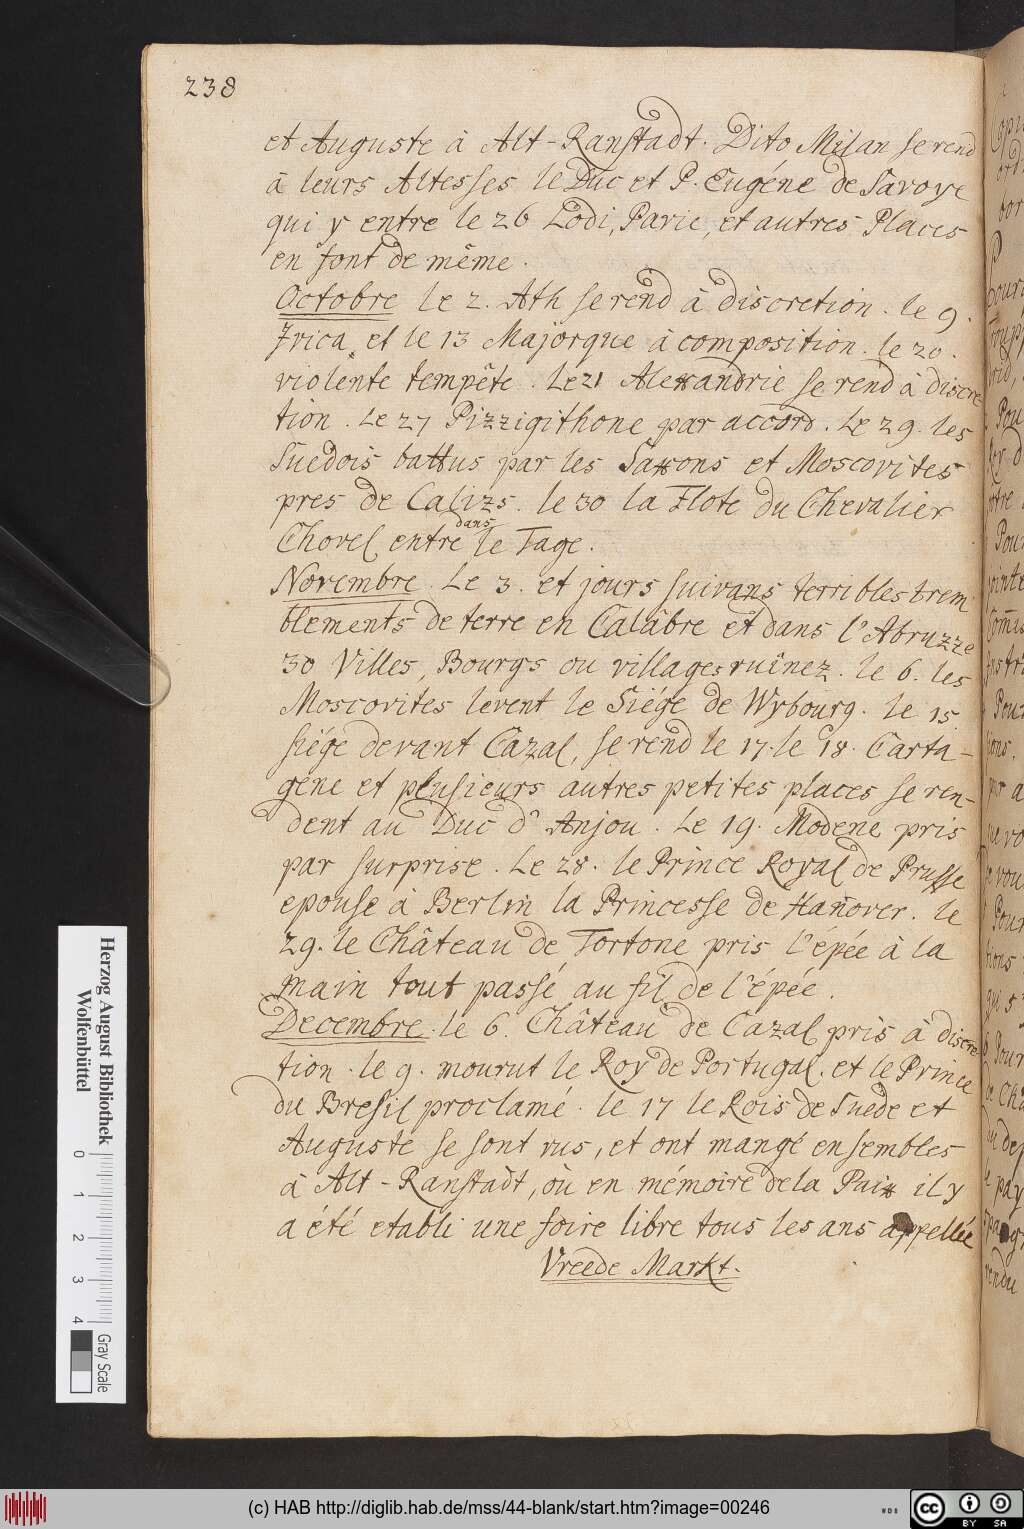 238
et Auguste à Alt-Ranstadt. Dito Milan se rend
à leurs Altesses le Duc et P. Eugéne de Savoye
qui y entre le 26 Lodi, Pavie, et autres Places
en font de même.
Octobre le 2. Ath se rend à discretion. le 9.
Ivica et le 13 Majorque à composition. le 20.
violente tempête. Le 21 Alexandrie se rend à discre
tion. Le 27 Pizzigithone par accord. Le 29. les
Suedois battus par les Saxons et Moscovites
pres de Calizs. le 30 la Flote du Chevalier
Chovel entre dans le Tage.
Novembre. Le 3. et jours suivans terribles trem
blements de terre en Calâbre et dans l'Abruzze
30 Villes, Bourgs ou villages ruînez. le 6. les
Moscovites levent le Siége de Wybourg. le 15
siége devant Câzal, se rend le 17. le 18. Carta-
gene et plusieurs autres petites places se ren-
dent au Duc d'Anjou. Le 19. Modene pris
par surprise. Le 28. le Prince Royal de Prusse
epouse à Berlin la Princesse de Hañover. le
29. le Château de Tortone pris l'épée à la
main tout passé au fil de l'épée.
Decembre. le 6 Château de Cazal pris à discre
tion. le 9. mourut le Roy de Portugal. et le Prince
du Bresil proclamé. le 17 le Rois de Suede et
Auguste se sont vus, et ont mangé ensembles
à Alt-Ranstadt, où en mémoire de la Paix il y
a été etabli une foire libre tous les ans appellée
Vreede Markt.
Herzog August Bibliothek
Wolfenbüttel
0 1 2 3 4
Gray Scale
(c) HAB http://diglib.hab.de/mss/44-blank/start.htm?image=00246
WDB
cc BY SA